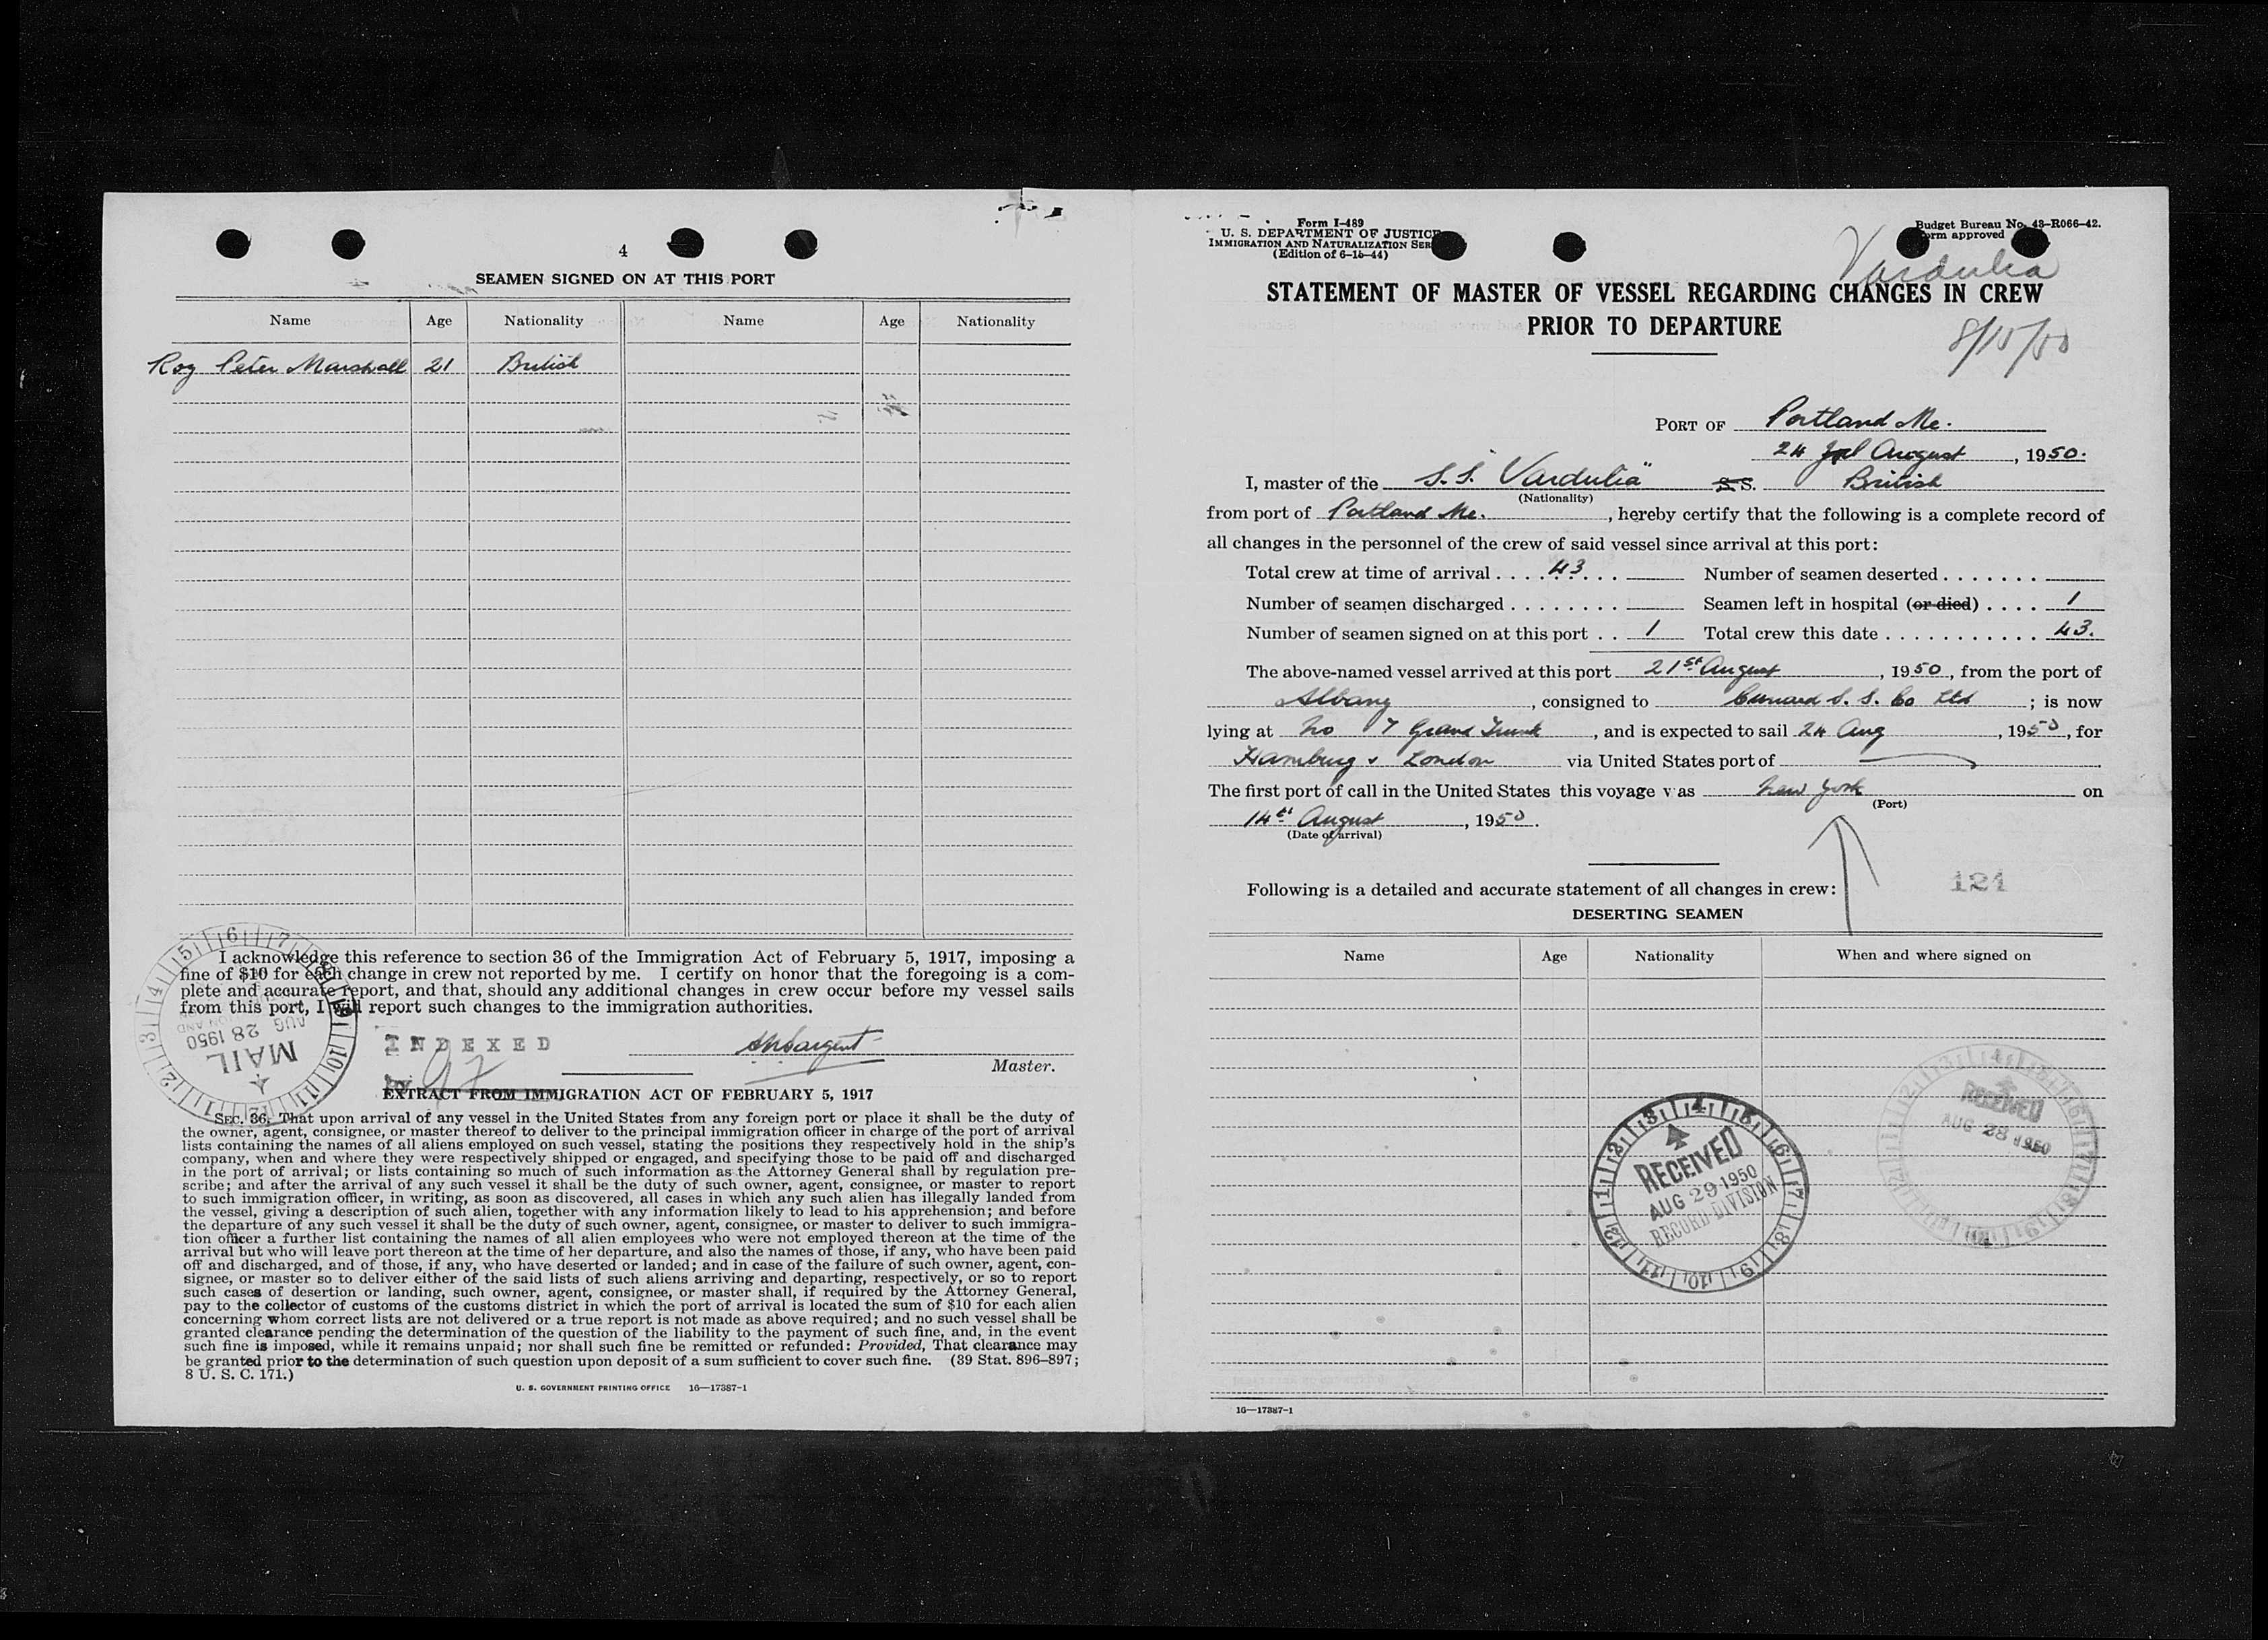 4
SEAMEN SIGNED ON AT THIS PORT
Name Age Nationality Name Age Nationality
Roy Peter Marshall 21 British
I acknowledge this reference to section 36 of the Immigration Act of February 5, 1917, imposing a
fine of $10 for each change in crew not reported by me. I certify on honor that the foregoing is a com-
plete and accurate report, and that, should any additional changes in crew occur before my vessel sails
from this port, I will report such changes to the immigration authorities.
MAIL
AUG 28 1950
INDEXED
Sargent
Master.
by
EXTRACT FROM IMMIGRATION ACT OF FEBRUARY 5, 1917
SEC. 36. That upon arrival of any vessel in the United States from any foreign port or place it shall be the duty of
the owner, agent, consignee, or master thereof to deliver to the principal immigration officer in charge of the port of arrival
lists containing the names of all aliens employed on such vessel, stating the positions they respectively hold in the ship's
company, when and where they were respectively shipped or engaged, and specifying those to be paid off and discharged
in the port of arrival; or lists containing so much of such information as the Attorney General shall by regulation pre-
scribe; and after the arrival of any such vessel it shall be the duty of such owner, agent, consignee, or master to report
to such immigration officer, in writing, as soon as discovered, all cases in which any such alien has illegally landed from
the vessel, giving a description of such alien, together with any information likely to lead to his apprehension; and before
the departure of any such vessel it shall be the duty of such owner, agent, consignee, or master to deliver to such immigra-
tion officer a further list containing the names of all alien employees who were not employed thereon at the time of the
arrival but who will leave port thereon at the time of her departure, and also the names of those, if any, who have been paid
off and discharged, and of those, if any, who have deserted or landed; and in case of the failure of such owner, agent, con-
signee, or master so to deliver either of the said lists of such aliens arriving and departing, respectively, or so to report
such cases of desertion or landing, such owner, agent, consignee, or master shall, if required by the Attorney General,
pay to the collector of customs of the customs district in which the port of arrival is located the sum of $10 for each alien
concerning whom correct lists are not delivered or a true report is not made as above required; and no such vessel shall be
granted clearance pending the determination of the question of the liability to the payment of such fine, and, in the event
such fine is imposed, while it remains unpaid; nor shall such fine be remitted or refunded: Provided, That clearance may
be granted prior to the determination of such question upon deposit of a sum sufficient to cover such fine. (39 Stat. 896–897;
8 U. S. C. 171.)
U. S. GOVERNMENT PRINTING OFFICE 16—17387-1
Form I-489
U. S. DEPARTMENT OF JUSTICE
IMMIGRATION AND NATURALIZATION SER
(Edition of 6-15-44)
Budget Bureau No. 43-R066-42.
orm approved
Vardulia
STATEMENT OF MASTER OF VESSEL REGARDING CHANGES IN CREW
PRIOR TO DEPARTURE
8/15/50
PORT OF Portland Me.
24 August, 1950.
I, master of the S.S. Vardulia" S.S. British
(Nationality)
from port of Portland Me., hereby certify that the following is a complete record of
all changes in the personnel of the crew of said vessel since arrival at this port:
Total crew at time of arrival .... 43 ... Number of seamen deserted .......
Number of seamen discharged ........ Seamen left in hospital (or died) .... 1
Number of seamen signed on at this port .. 1 Total crew this date ............ 43.
The above-named vessel arrived at this port 21st August, 1950, from the port of
Albany, consigned to Cunard S. S. Co Ltd; is now
lying at No 7 Grand Trunk, and is expected to sail 24 Aug, 1950, for
Hamburg & London via United States port of
The first port of call in the United States this voyage was New York on
(Port)
14th August, 1950.
(Date of arrival)
Following is a detailed and accurate statement of all changes in crew:
121
DESERTING SEAMEN
Name Age Nationality When and where signed on
RECEIVED
AUG 28 1950
RECEIVED
AUG 29 1950
RECORD DIVISION
16—17387-1